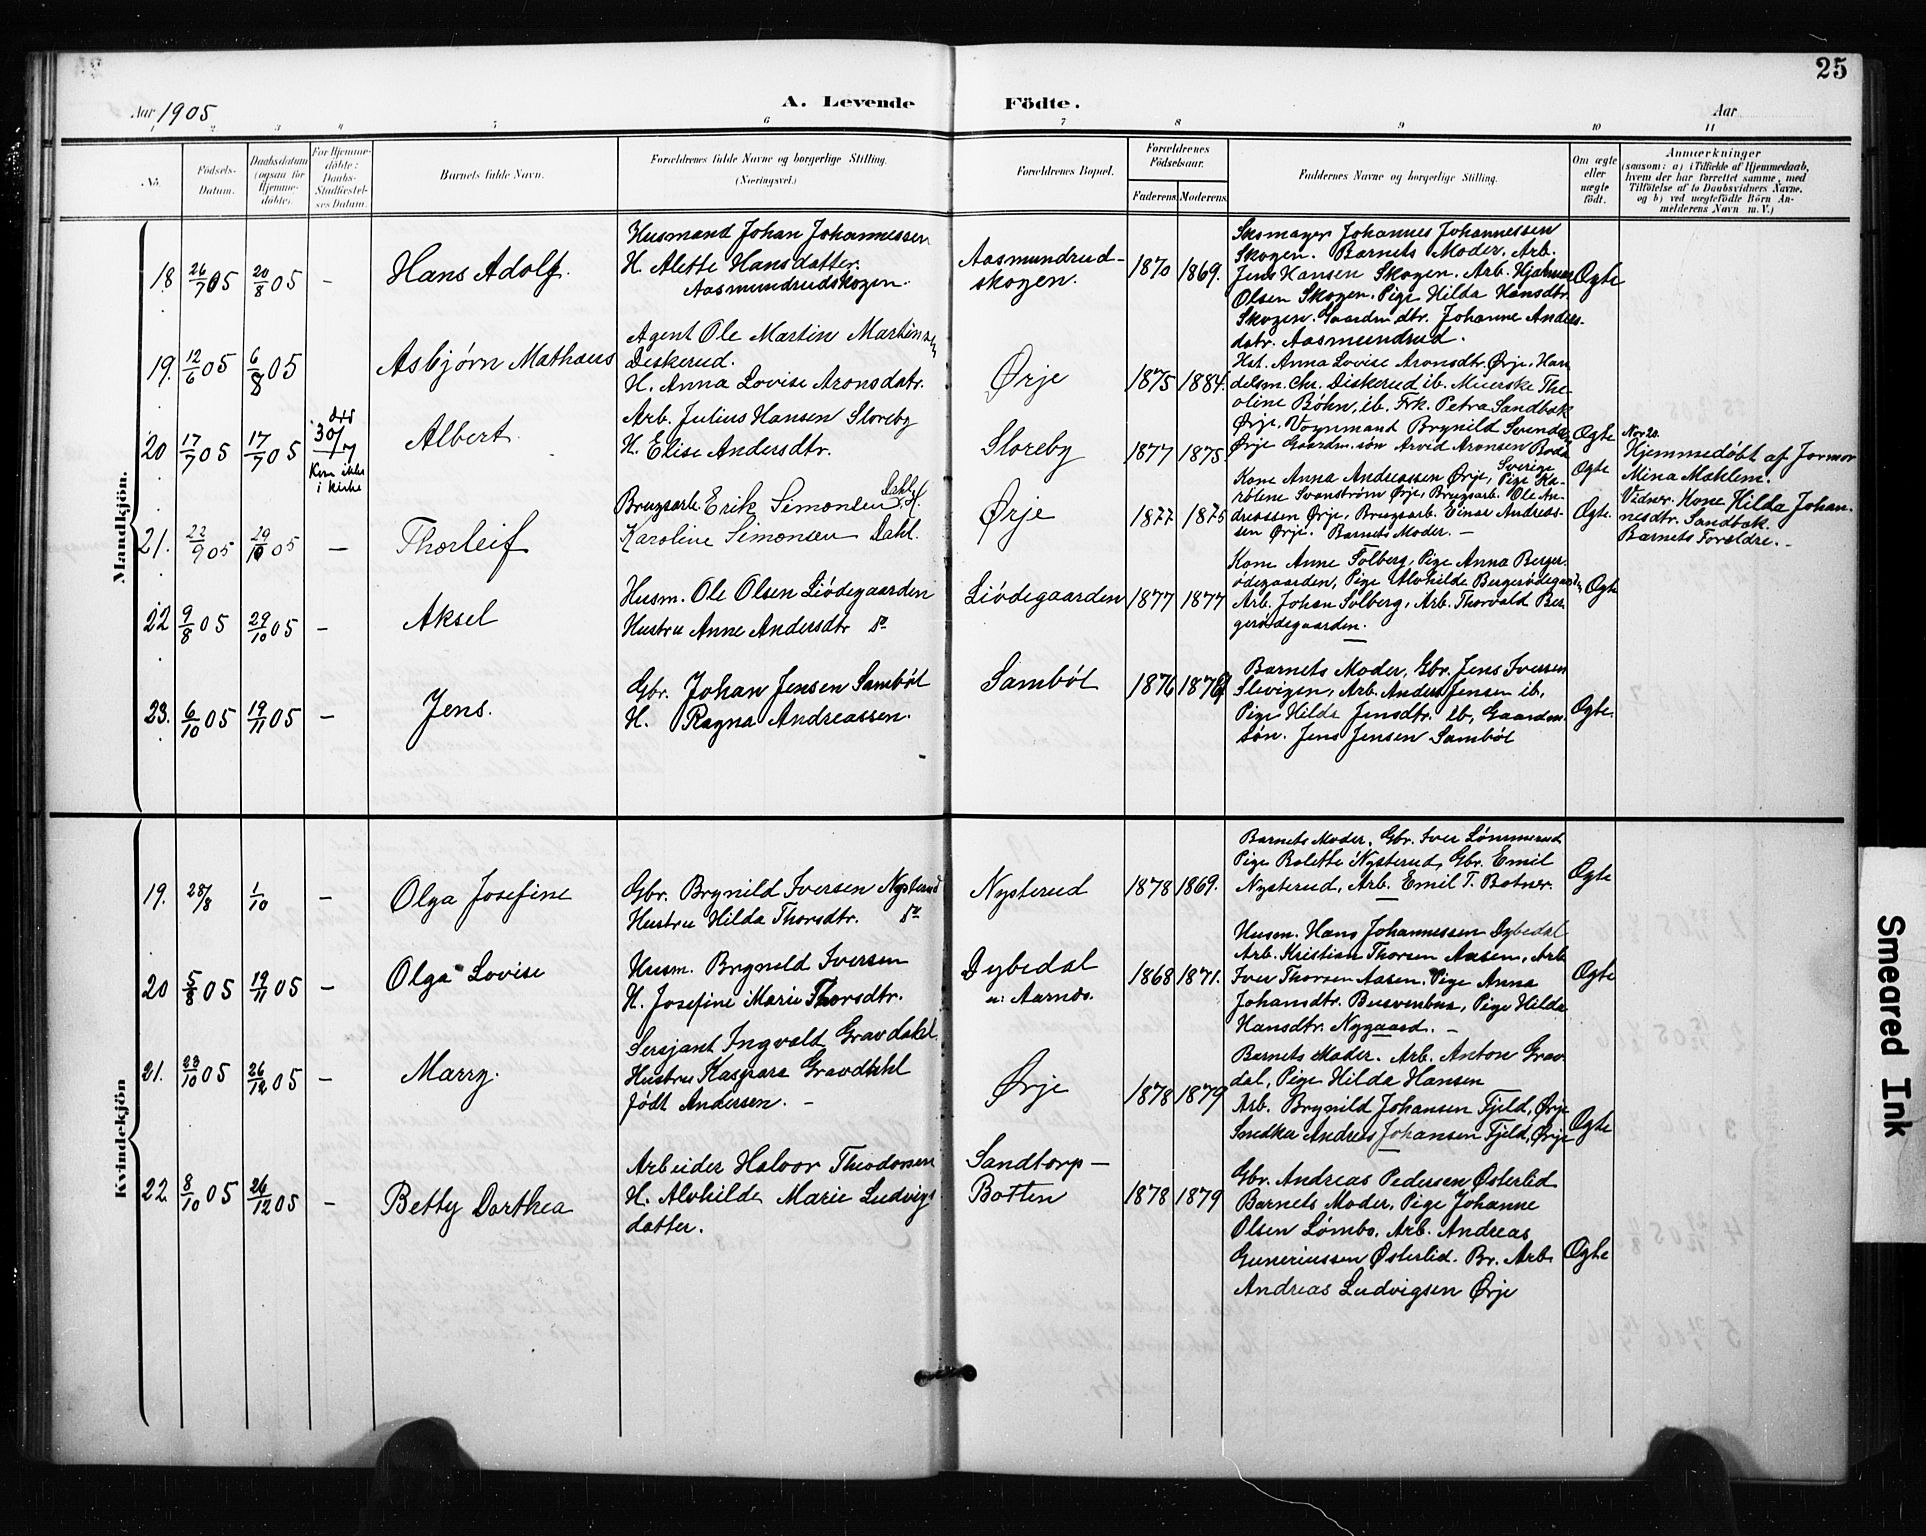 25
Aar 1905
A. Levende
Födte.
Aar
1 2 3 4 5 6 7 8 9 10 11
No.
Födsels-
Datum.
Daabsdatum
(ogsaa for
Hjemme-
döbte).
For Hjemme-
döbte:
Daabs-
Stadfæstel-
ses Datum.
Barnets fulde Navn.
Forældrenes fulde Navne og borgerlige Stilling.
(Næringsvei.)
Forældrenes Bopæl.
Forældrenes
Födselsaar.
Faderens. Moderens.
Faddernes Navne og borgerlige Stilling.
Om ægte
eller
uægte
födt.
Anmærkninger
(saasom: a) i Tilfælde af Hjemmedaab,
hvem der har forrettet samme, med
Tilföielse af to Daabsvidners Navne,
og b) ved uægtefödte Börn An-
melderens Navn m. V.)
Mandkjön.
18 26/7 05 20/8 05 –
Hans Adolf.
Husmand Johan Johannessen
H. Alette Hansdatter.
Aasmundrudskogen.
Aasmundrud-
skogen.
1870 1869.
Skomager Johannes Johannessen
Skogen. Barnets Moder. Arb.
Jens Hansen Skogen. Arb. Hjalmar
Olsen Skogen. Pige Hilda Hansdtr.
Skogen. Gaardm dtr. Johanne Anders-
datr. Aasmundrud.
Ægte
19. 12/6 05 6/8 05
Asbjørn Mathæus
Agent Ole Martin Martinsen
Diskerud.
H. Anna Lovise Aronsdatr.
Ørje
1875 1884.
Hst. Anna Lovise Aronsdtr. Ørje. Han
delsm. Chr. Diskerud ib. Mierske The-
oline Bøhn, ib. Frk. Petra Sandbæk
Ørje. Vognmand Brynild Svendsen
Ørje Gaardm. søn Arvid Aronsen
Sverige
Ægte
20 17/7 05 17/7 05
30/7
Kom ikke
i kirke
Albert.
Arb. Julius Hansen Storeby
H. Elise Andersdtr.
Storeby
1877 1875.
Ægte
No 20.
Hjemmedøbt af Jormor
Mina Moklem.
Vidner. Kone Hilda Johan-
nesdtr. Sandbæk.
Barnets Forældre. –
21. 22/9 05 29/10 05 –
Thorleif
Brugsarb. Erik Simonsen Dahl, H.
Karoline Simonsen Dahl.
Ørje
1877 1875
Kone Anna Andreassen Ørje, Pige Ka-
roline Svanstrøm Ørje, Brugsarb. Ole An-
dreassen Ørje, Brugsarb. Einar Andreas-
sen Ørje. Barnets Moder. –
Ægte.
22 9/8 05 29/10 05 –
Aksel
Husm. Ole Olsen Liødegaarden
Hustru Anne Andersdtr do
Liødegaarden
1877 1877
Kone Anne Solberg, Pige Anna Berger-
ødegaarden, Pige Alvhilde Bergerødegaard,
Arb. Johan Solberg, Arb. Thorvald Ber-
gerødegaarden.
Ægte
23. 6/10 05 19/11 05 –
Jens.
Gbr. Johan Jensen Sambøl
H. Ragna Andreassen.
Sambøl
1876
Barnets Moder, Gbr. Jens Iversen
Slevigen, Arb. Anders Jensen ib,
Pige Hilda Jensdtr. ib, Gaardm.
søn. Jens Jensen Sambøl
Ægte.
Kvindekjön
19. 28/8 1/10 –
Olga Josefine
Gbr. Brynild Iversen Nysterud
Hustru Hilda Thorsdtr. do
Nysterud
1878 1869.
Barnets Moder, Gbr. Iver Lømmerud
Pige Bolette Nysterud, Gbr. Emil
Nysterud, Arb. Emil T. Botner.
Ægte
20 5/8 05 19/11 05 –
Olga Lovise
Husm. Brynild Iversen
H. Josefine Marie Thorsdtr.
Dybedal
u. Aarnes.
1868 1871.
Husm. Hans Johannessen Dybedal
Arb. Kristian Thorsen Aasen, Arb
Iver Thorsen Aasen. Pige Anna
Johansdtr. Busvenbus, Pige Hilda
Hansdtr. Nygaard. –
Ægte
21. 23/10 05 26/12 05 –
Marry.
Sersjant Ingvald Gravdahl.
Hustru Kaspara Gravdahl
født Andersen. –
Ørje
1878 1879
Barnets Moder. Arb. Anton Grav-
dal, Pige Hilda Hansen
Arb. Brynild Johansen Fjeld, Ørje
Snedker Andreas Johansen Fjeld, Ørje
Ægte
22. 8/10 05 26/12 05 –
Betty Dorthea
Arbeider Halvor Theodorsen
H. Alvhilde Marie Ludvigs
datter.
Sandtorp –
Botten
1878 1879
Gbr. Andreas Pedersen Østerlid
Barnets Moder, Pige Johanne
Olsen Lømbo, Arb. Andreas
Guneriussen Østerlid. Br. Arb.
Andreas Ludvigsen Ørje
Ægte
Smeared Ink